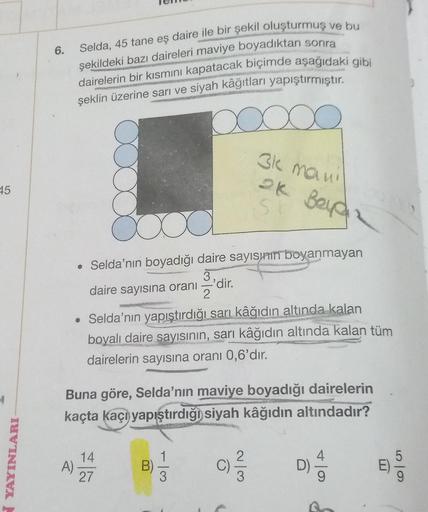 6. Selda, 45 tane eş daire ile bir şekil oluşturmuş ve bu
şekildeki bazı daireleri maviye boyadıktan sonra
dairelerin bir kısmını kapatacak biçimde aşağıdaki gibi
şeklin üzerine sarı ve siyah kâğıtları yapıştırmıştır.
45
3k mavi
2k Beyaz
• Selda'nın boyadığı daire sayısının boyanmayan
daire sayısına oranı 3/2'dir.
• Selda'nın yapıştırdığı sarı kâğıdın altında kalan
boyalı daire sayısının, sarı kâğıdın altında kalan tüm
dairelerin sayısına oranı 0,6'dır.
Buna göre, Selda'nın maviye boyadığı dairelerin
kaçta kaçı yapıştırdığı siyah kâğıdın altındadır?
A) 14/27 B) 1/3 C) 2/3 D) 4/9 E) 5/9
YAYINLARI